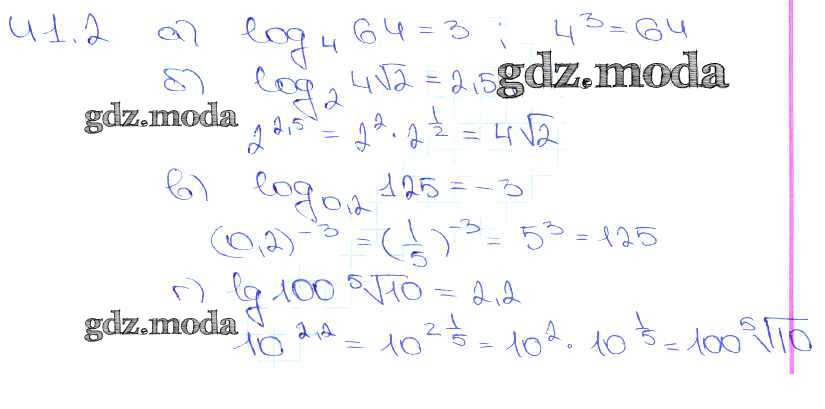 41.2 а) log₄ 64 = 3 ; 4³ = 64
б) log₂ 4√2 = 2,5 gdz.moda
gdz.moda 2^2,5 = 2² · 2^(1/2) = 4√2
в) log₀,₂ 125 = -3
(0,2)⁻³ = (1/5)⁻³ = 5³ = 125
г) lg 100 ⁵√10 = 2,2
gdz.moda 10^2,2 = 10^(2 1/5) = 10² · 10^(1/5) = 100 ⁵√10